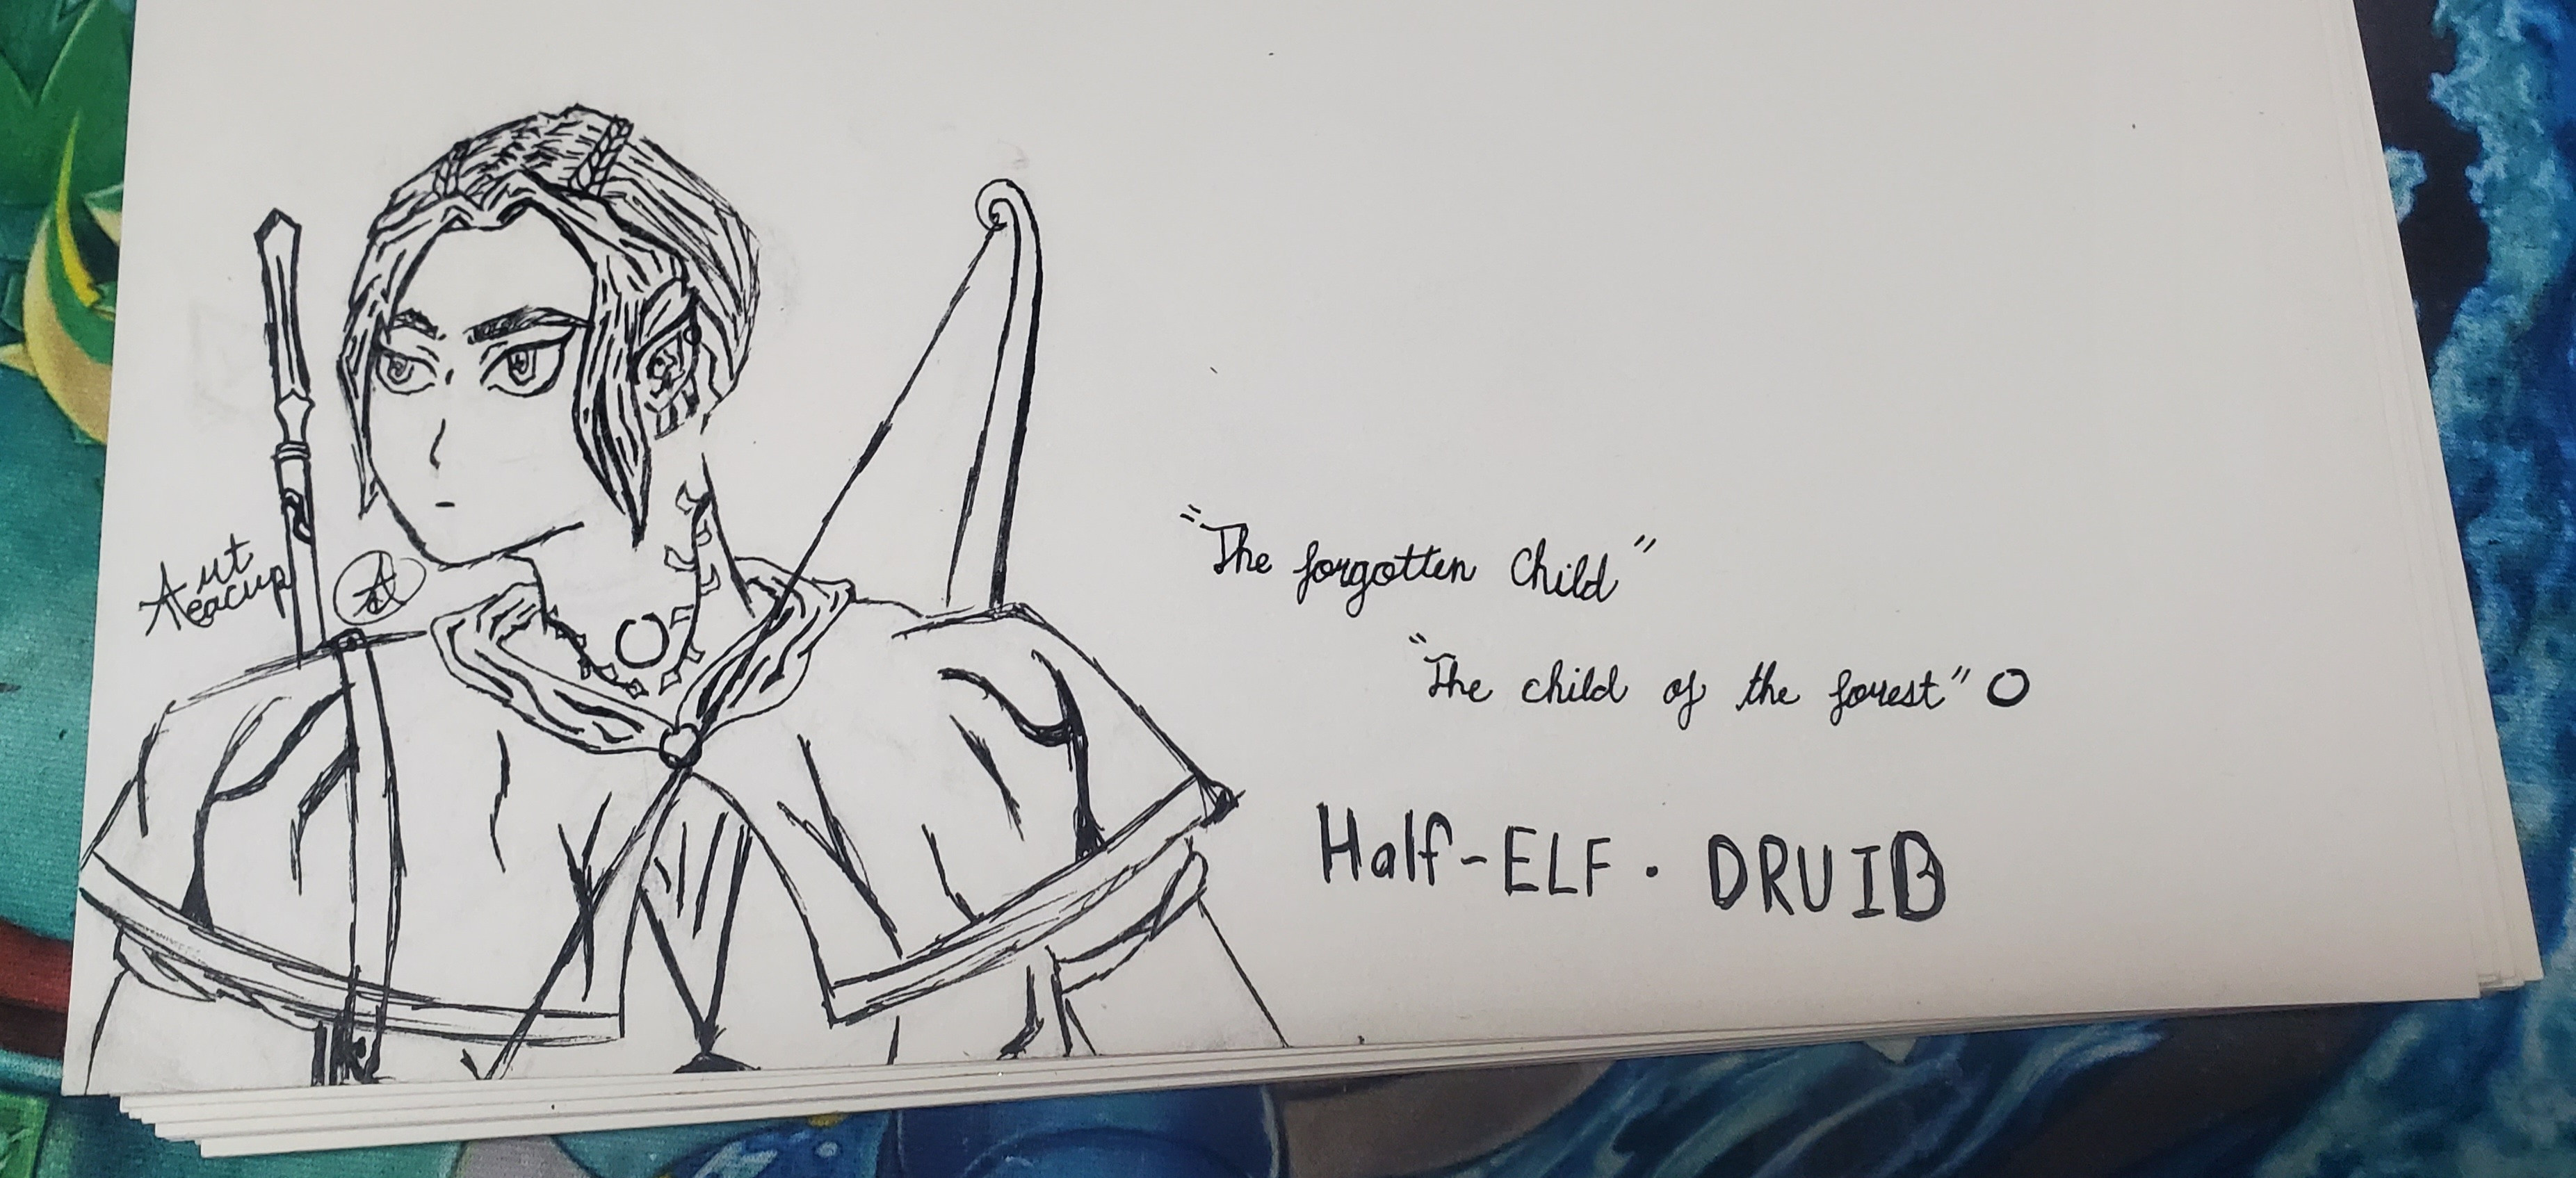 "The forgotten Child"
"The child of the forest" O
Half-ELF · DRUID
Aut
Aeacup